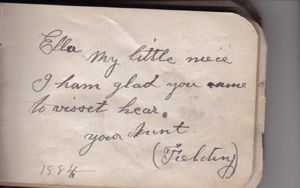 Ella My little niece
I ham glad you came
to visset hear.
your Aunt
(Fielding)